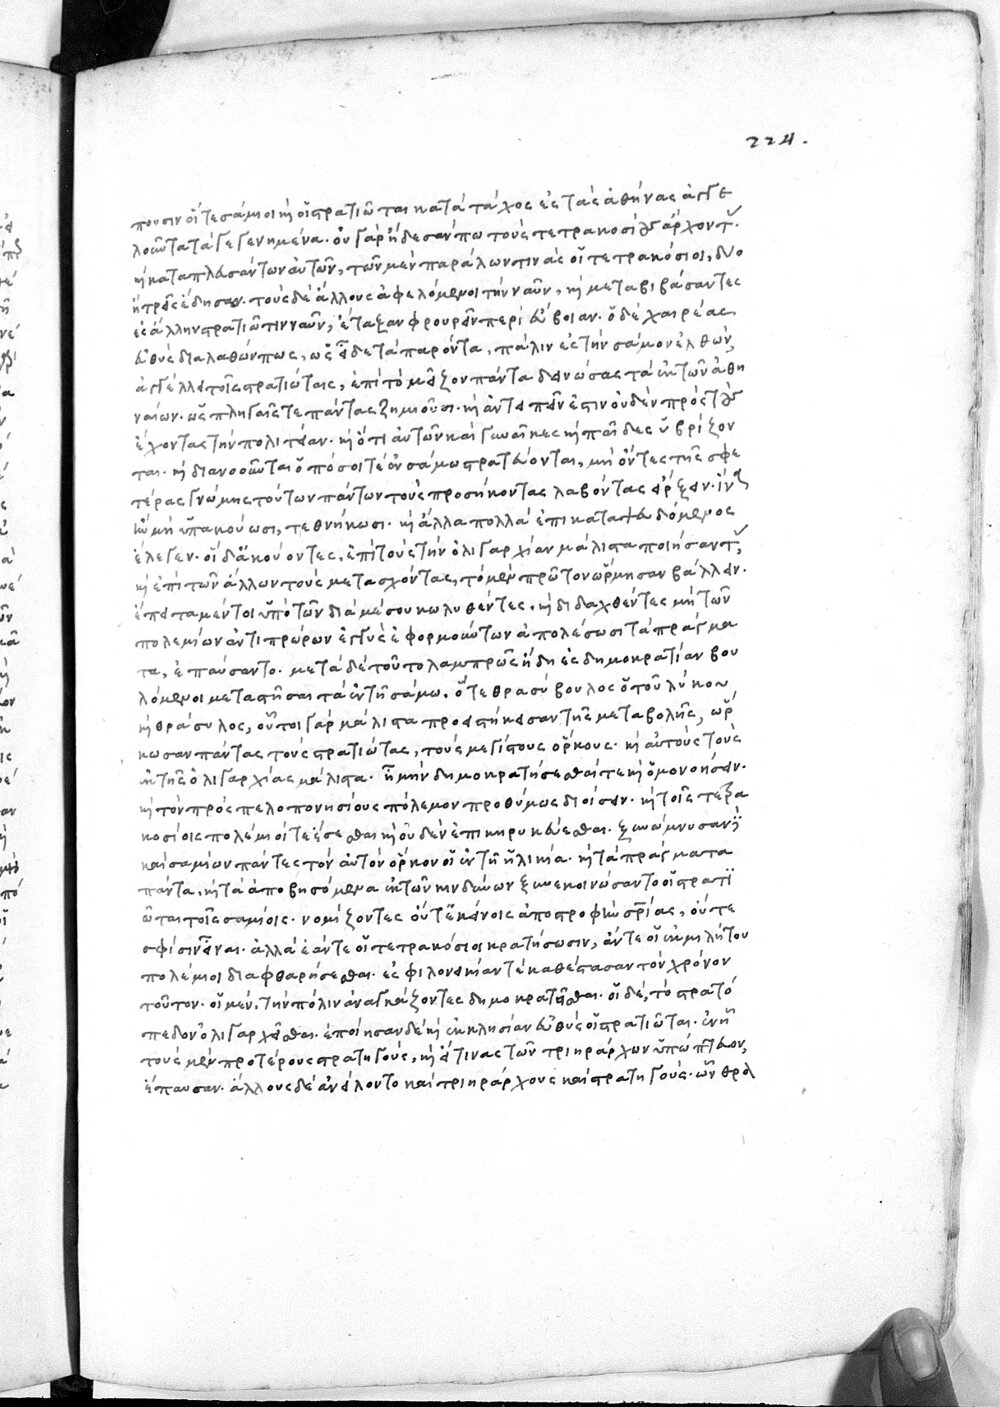 224.
πουσιν οἵ τε σάμιοι καὶ οἱ στρατιῶται κατὰ τάχος ἐς τὰς ἀθήνας ἀγγε
λοῦντα τὰ γεγενημένα. οὐ γὰρ ᾔδεσάν πω τοὺς τετρακοσίους ἄρχοντας.
καὶ καταπλευσάντων αὐτῶν, τῶν μὲν παράλων τινὰς οἱ τετρακόσιοι, δύο
ἢ τρεῖς ἔδησαν. τοὺς δὲ ἄλλους ἀφελόμενοι τὴν ναῦν, καὶ μεταβιβάσαντες
ἐς ἄλλην στρατιῶτιν ναῦν, ἔταξαν φρουρεῖν περὶ εὔβοιαν. ὁ δὲ χαιρέας
εὐθὺς διαλαθών πως, ὡς εἶδε τὰ παρόντα, πάλιν ἐς τὴν σάμον ἐλθὼν,
ἀγγέλλει τοῖς στρατιώταις, ἐπὶ τὸ μεῖζον πάντα δεινώσας τὰ ἐκ τῶν ἀθη
ναίων. ὡς πληγαῖς τε πάντας ζημιοῦσι. καὶ ἀντειπεῖν ἔστιν οὐδὲν πρὸς τοὺς
ἔχοντας τὴν πολιτείαν. καὶ ὅτι αὐτῶν καὶ γυναῖκες καὶ παῖδες ὑβρίζον
ται. καὶ διανοοῦνται ὁπόσοι τε ἐν σάμω στρατεύονται, μὴ ὄντες τῆς σφε
τέρας γνώμης τούτων πάντων τοὺς προσήκοντας λαβόντας εἴρξειν. ἵνα
ἢν μὴ ὑπακούωσι, τεθνήκωσι. καὶ ἄλλα πολλὰ ἐπικαταψευδόμενος
ἔλεγεν. οἱ δ' ἀκούοντες, ἐπὶ τοὺς τὴν ὀλιγαρχίαν μάλιστα ποιήσαντας,
καὶ ἐπὶ τῶν ἄλλων τοὺς μετασχόντας, τὸ μὲν πρῶτον ὥρμησαν βάλλειν.
ἔπειτα μέντοι ὑπὸ τῶν διὰ μέσου κωλυθέντες. καὶ διδαχθέντες μὴ τῶν
πολεμίων ἀντιπρώρων ἐγγὺς ἐφορμούντων ἀπολέσωσι τὰ πράγμα
τα, ἐπαύσαντο. μετὰ δὲ τοῦτο λαμπρῶς ἤδη ἐς δημοκρατίαν βου
λόμενοι μεταστῆσαι τὰ ἐν τῇ σάμω. ὅ τε θρασύβουλος ὁ τοῦ λύκου
καὶ θράσυλος, οὗτοι γὰρ μάλιστα προειστήκεισαν τῆς μεταβολῆς, ὥρ
κωσαν πάντας τοὺς στρατιώτας, τοὺς μεγίστους ὅρκους. καὶ αὐτοὺς τοὺς
ἐκ τῆς ὀλιγαρχίας μάλιστα. ἦ μὴν δημοκρατήσεσθαί τε καὶ ὁμονοήσειν.
καὶ τὸν πρὸς πελοπονησίους πόλεμον προθύμως διοίσειν. καὶ τοῖς τετρα
κοσίοις πολέμιοί τε ἔσεσθαι καὶ οὐδὲν ἐπικηρυκεύεσθαι. ξυνώμνυσαν δὲ
καὶ σαμίων πάντες τὸν αὐτὸν ὅρκον οἱ ἐν τῇ ἡλικία. καὶ τὰ πράγματα
πάντα, καὶ τὰ ἀποβησόμενα ἐκ τῶν κινδύνων ξυνεκοινώσαντο οἱ στρατι
ῶται τοῖς σαμίοις. νομίζοντες οὔτε ἐκείνοις ἀποστροφὴν σωτηρίας, οὔτε
σφίσιν εἶναι. ἀλλὰ ἐάν τε οἱ τετρακόσιοι κρατήσωσιν, ἄν τε οἱ ἐκ μιλήτου
πολέμιοι διαφθαρήσεσθαι. ἐς φιλονεικίαν τὲ καθέστασαν τὸν χρόνον
τοῦτον. οἱ μὲν, τὴν πόλιν ἀναγκάζοντες δημοκρατεῖσθαι. οἱ δὲ, τὸ στρατό
πεδον ὀλιγαρχεῖσθαι. ἐποίησαν δὲ καὶ ἐκκλησίαν εὐθὺς οἱ στρατιῶται. ἐν ᾗ
τοὺς μὲν προτέρους στρατηγοὺς, καὶ εἴ τινας τῶν τριηράρχων ὑπώπτευον,
ἔπαυσαν. ἄλλους δὲ ἀνθείλοντο καὶ τριηράρχους καὶ στρατηγούς. ὧν θρα